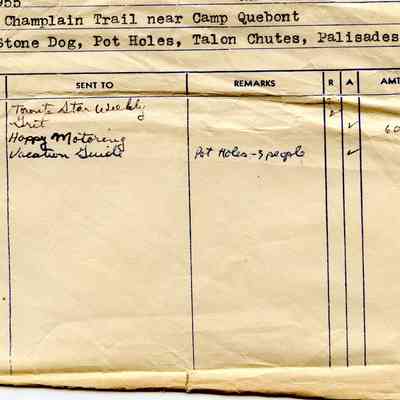 955
Champlain Trail near Camp Quebont
Stone Dog, Pot Holes, Talon Chutes, Palisades
SENT TO REMARKS R A AMT
Toronto Star Weekly
Grit ✓
Happy Motoring 6.0
Vacation Guide Pot Holes - 3 people ✓